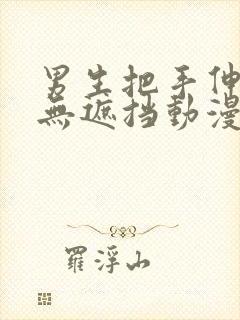 男生把手伸
無遮挡動漫
羅浮山